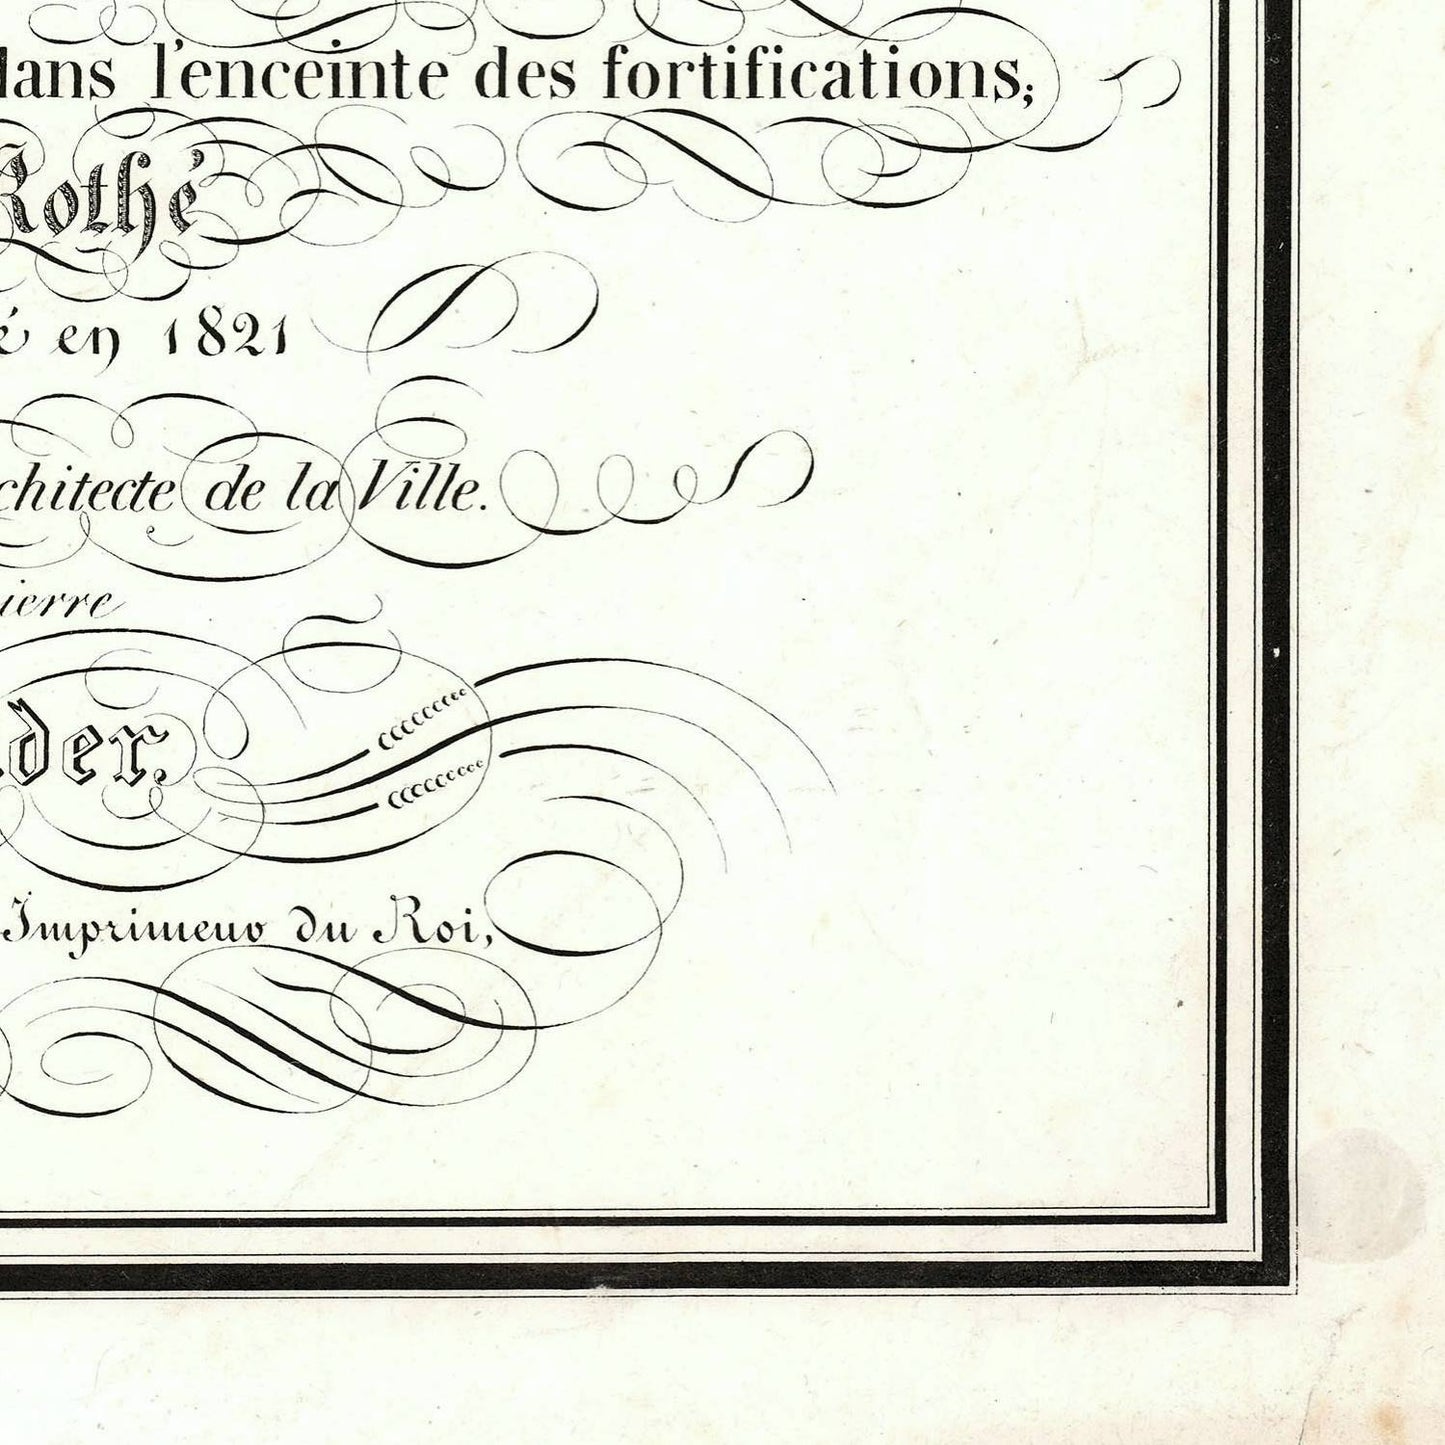 dans l'enceinte des fortifications;
Rothé
é en 1821
chitecte de la Ville.
ierre
der.
Imprimeur du Roi,